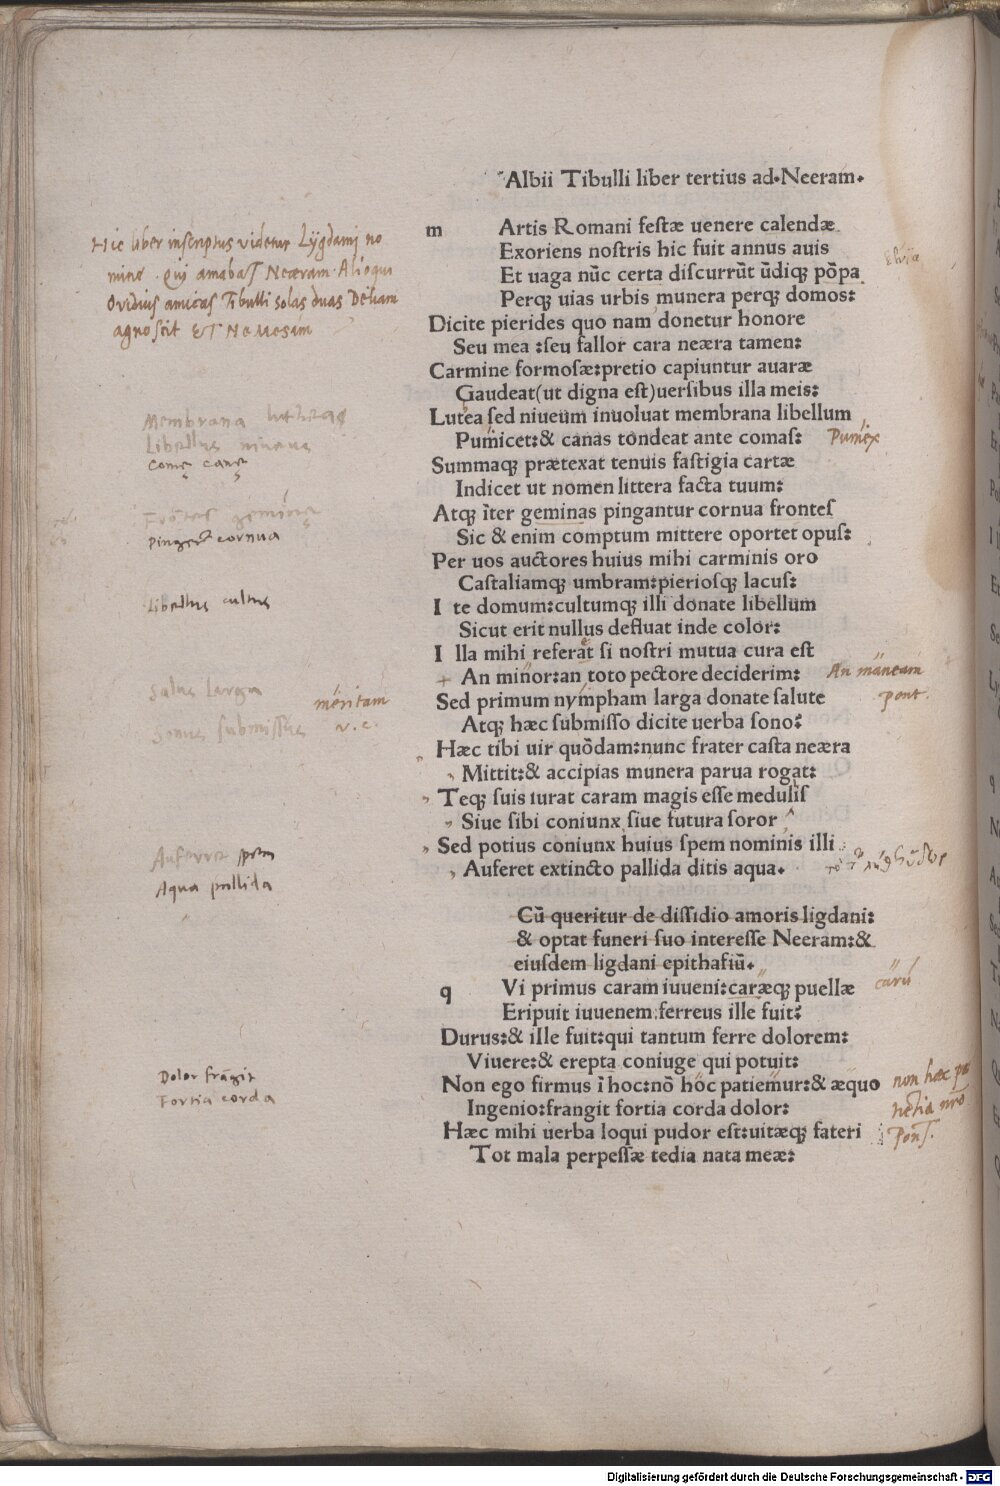 Albii Tibulli liber tertius ad•Neeram•
m Artis Romani festæ uenere calendæ
Exoriens nostris hic fuit annus auis
Et uaga nūc certa discurrūt ūdiqꝫ pōpa
Perqꝫ uias urbis munera perqꝫ domos:
Dicite pierides quo nam donetur honore
Seu mea :seu fallor cara neæra tamen:
Carmine formosæ:pretio capiuntur auaræ
Gaudeat(ut digna est)uersibus illa meis:
Lutea sed niueum inuoluat membrana libellum
Pumicet:& canas tondeat ante comas:
Summaqꝫ prætexat tenuis fastigia cartæ
Indicet ut nomen littera facta tuum:
Atqꝫ īter geminas pingantur cornua frontes
Sic & enim comptum mittere oportet opus:
Per uos auctores huius mihi carminis oro
Castaliamqꝫ umbram:pieriosqꝫ lacus:
I te domum:cultumqꝫ illi donate libellum
Sicut erit nullus defluat inde color:
I lla mihi referat si nostri mutua cura est
An minor:an toto pectore deciderim:
Sed primum nympham larga donate salute
Atqꝫ hæc submisso dicite uerba sono:
Hæc tibi uir quōdam:nunc frater casta neæra
Mittit:& accipias munera parua rogat:
Teqꝫ suis iurat caram magis esse medulis
Siue sibi coniunx siue futura soror
Sed potius coniunx huius spem nominis illi
Auferet extincto pallida ditis aqua•
Cū queritur de dissidio amoris ligdani:
& optat funeri suo interesse Neeram:&
eiusdem ligdani epithafiū•
q Vi primus caram iuueni:caræqꝫ puellæ
Eripuit iuuenem:ferreus ille fuit:
Durus:& ille fuit:qui tantum ferre dolorem:
Viuere:& erepta coniuge qui potuit:
Non ego firmus ī hoc:nō hoc patiemur:& æquo
Ingenio:frangit fortia corda dolor:
Hæc mihi uerba loqui pudor est:uitæqꝫ fateri
Tot mala perpessæ tedia nata meæ:
Hic liber inscriptus videtur Lygdami no
mine . qui amabat Neæram. Alioqui
Ovidius amicas Tibulli solas duas Deliam
agnoscit ET Nemesim
Membrana
Libellus niveus
Comę canę
Pingere cornua
Libellus cultus
Salus larga
Sonus submissus
meritam
v.c.
Auferre spem
Aqua pallida
Dolor frangit
Fortia corda
Pumex
An maneam
pont.
carū
non hæc pa
Pont.
Digitalisierung gefördert durch die Deutsche Forschungsgemeinschaft - DFG